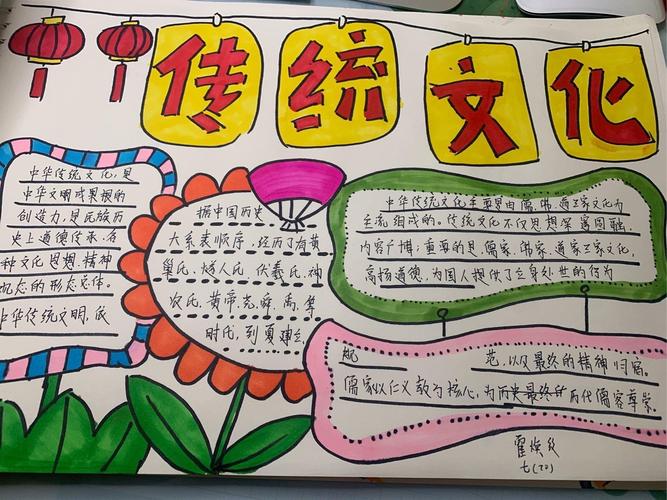 传统文化
中华传统文化,是
中华文明成果根的
创造力,是民族历
史上道德传承、各
种文化思想、精神
观念的形态总体。
中华传统文明,依
据中国历史
大系表顺序,经历了有黄
巢氏、燧人氏、伏羲氏、神
农氏、黄帝、尧、舜、禹、等
时代,到夏建立。
中华传统文化主要由儒、佛、道三家文化为
主流组成的。传统文化不仅思想深邃圆融,
内容广博;重要的是儒家、佛家、道家三家文化,
高扬道德,为国人提供了立身处世的行为
规 范,以及最终的精神归宿。
儒家以仁义教为核心,为历史最终 历代儒客尊崇。
七(20)